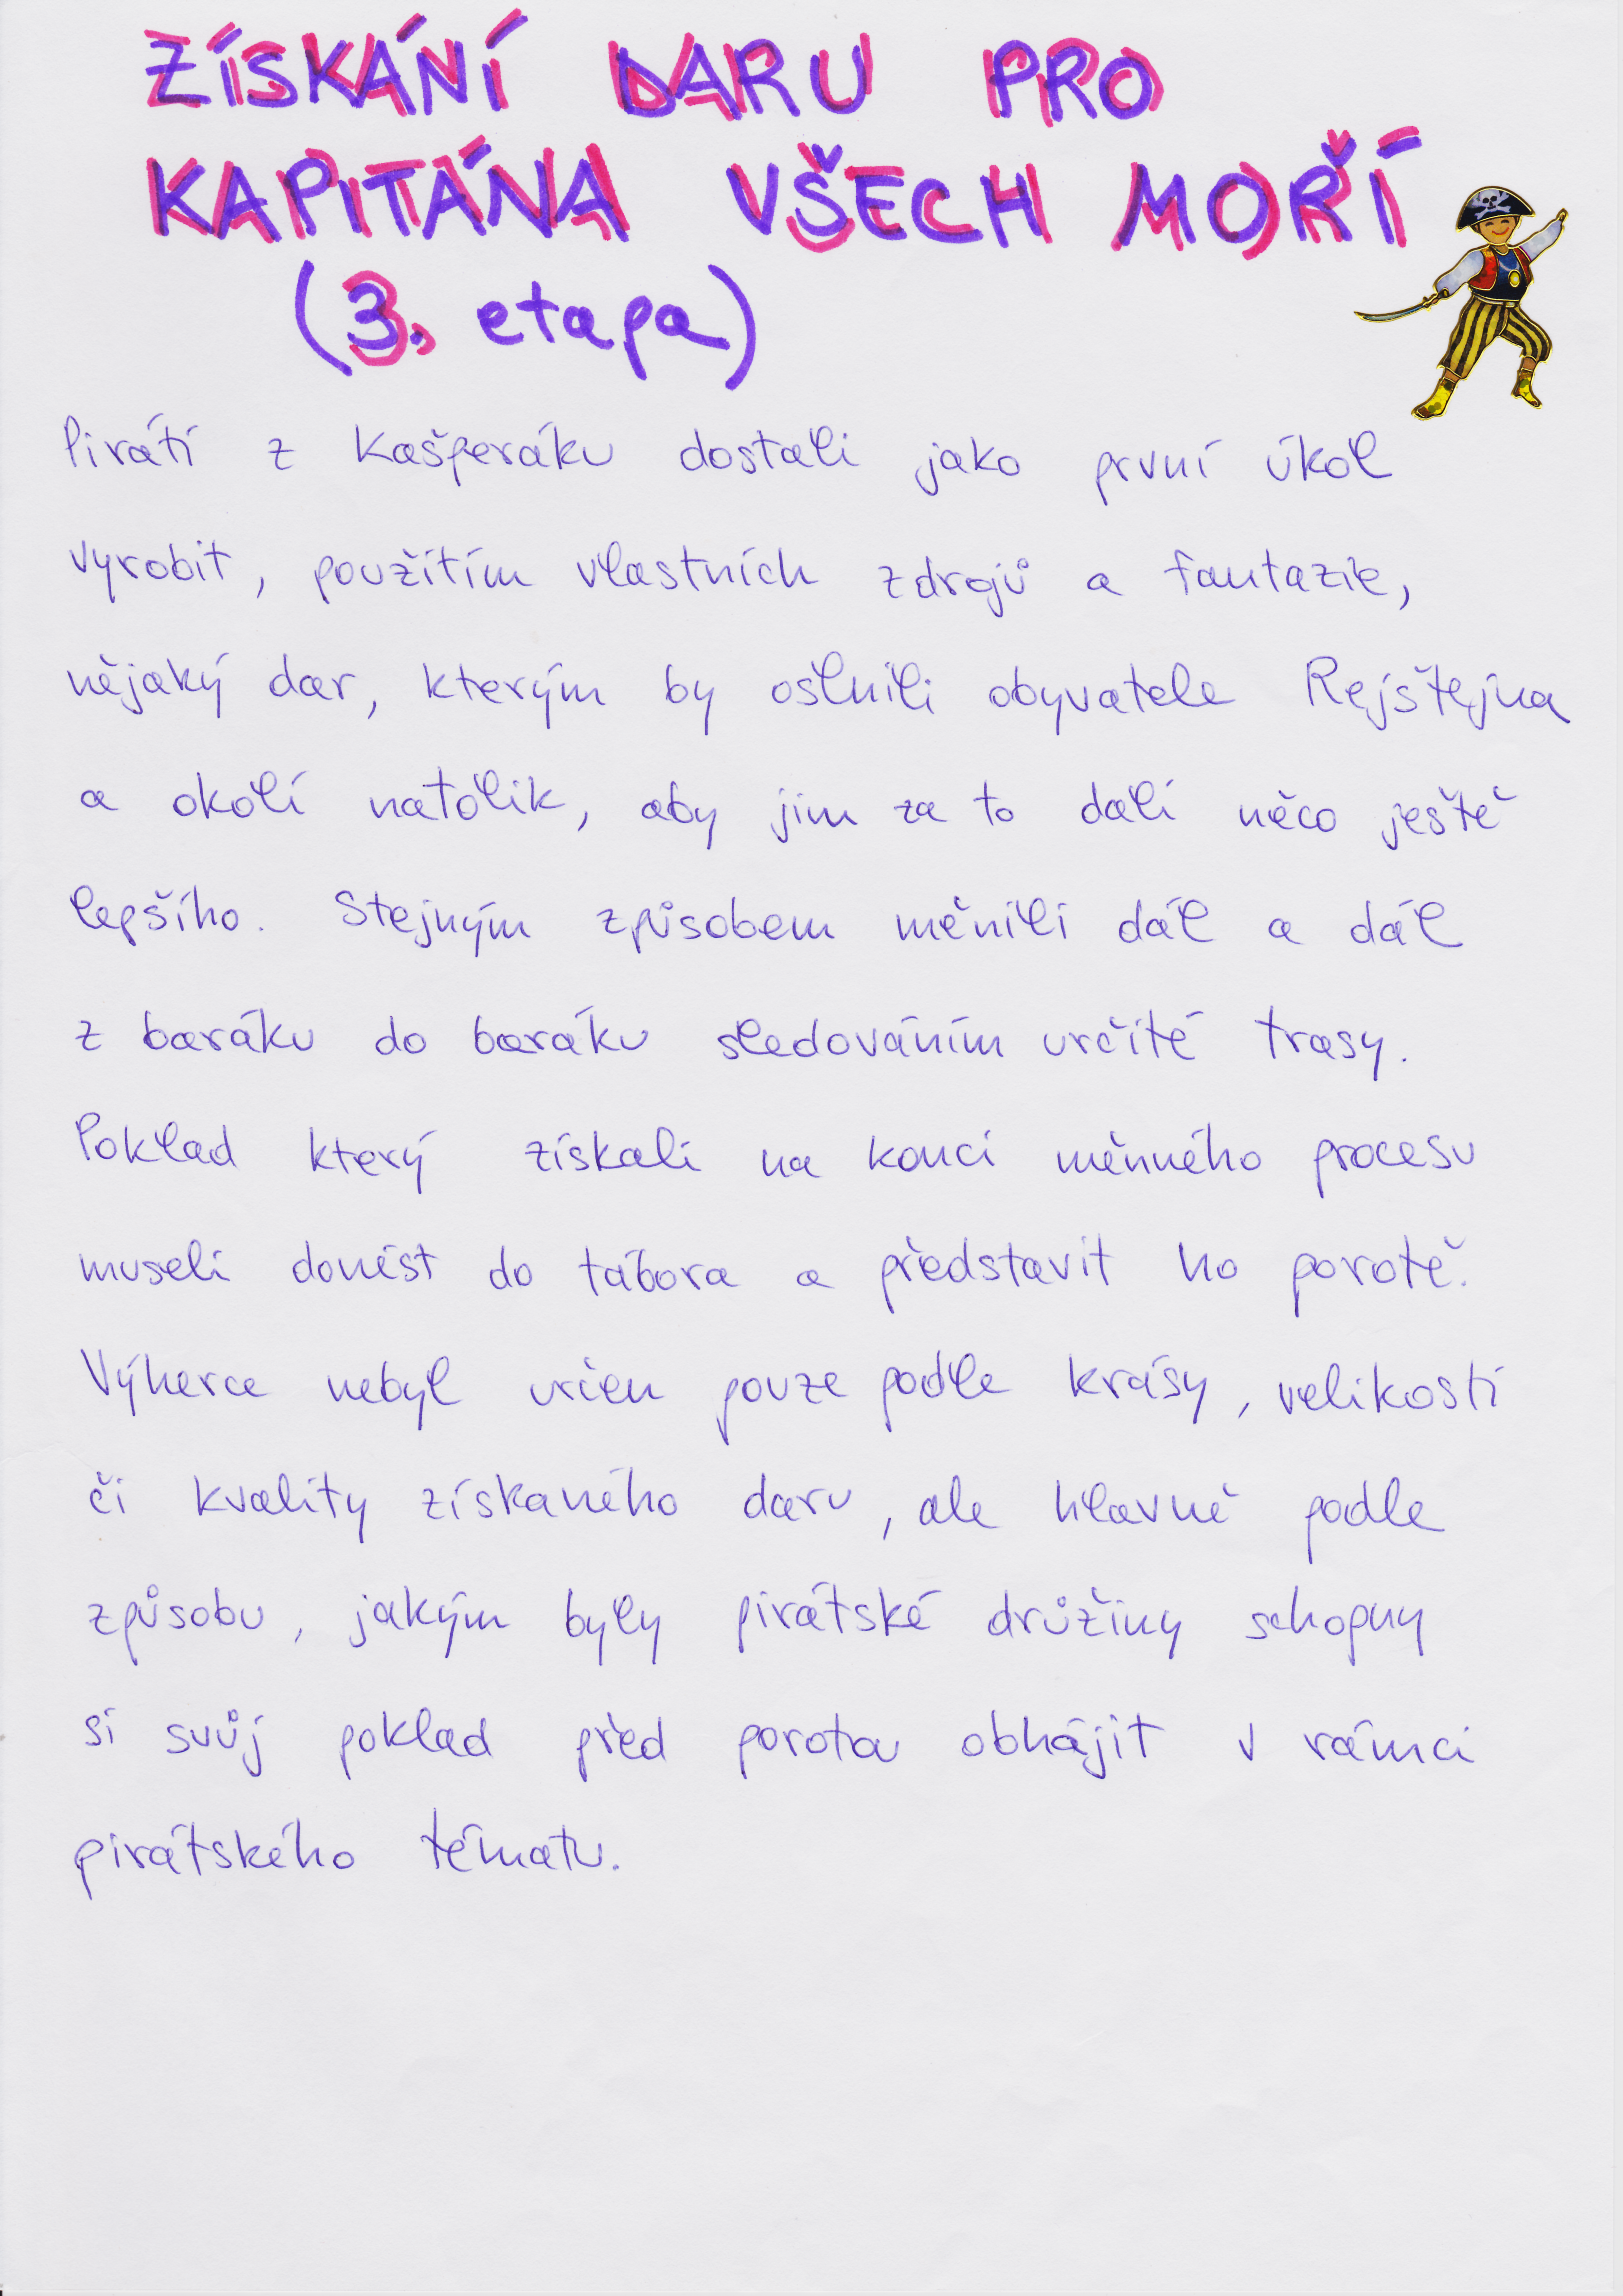 ZÍSKÁNÍ DARU PRO
KAPITÁNA VŠECH MOŘÍ
(3. etapa)
Piráti z Kašperáku dostali jako první úkol
vyrobit, použitím vlastních zdrojů a fantazie,
nějaký dar, kterým by oslnili obyvatele Rejštejna
a okolí natolik, aby jim za to dali něco ještě
lepšího. Stejným způsobem měnili dál a dál
z baráku do baráku sledováním určité trasy.
Poklad který získali na konci měnného procesu
museli donést do tábora a představit ho porotě.
Výherce nebyl určen pouze podle krásy, velikosti
či kvality získaného daru, ale hlavně podle
způsobu, jakým byly pirátské družiny schopny
si svůj poklad před porotou obhájit v rámci
pirátského tématu.